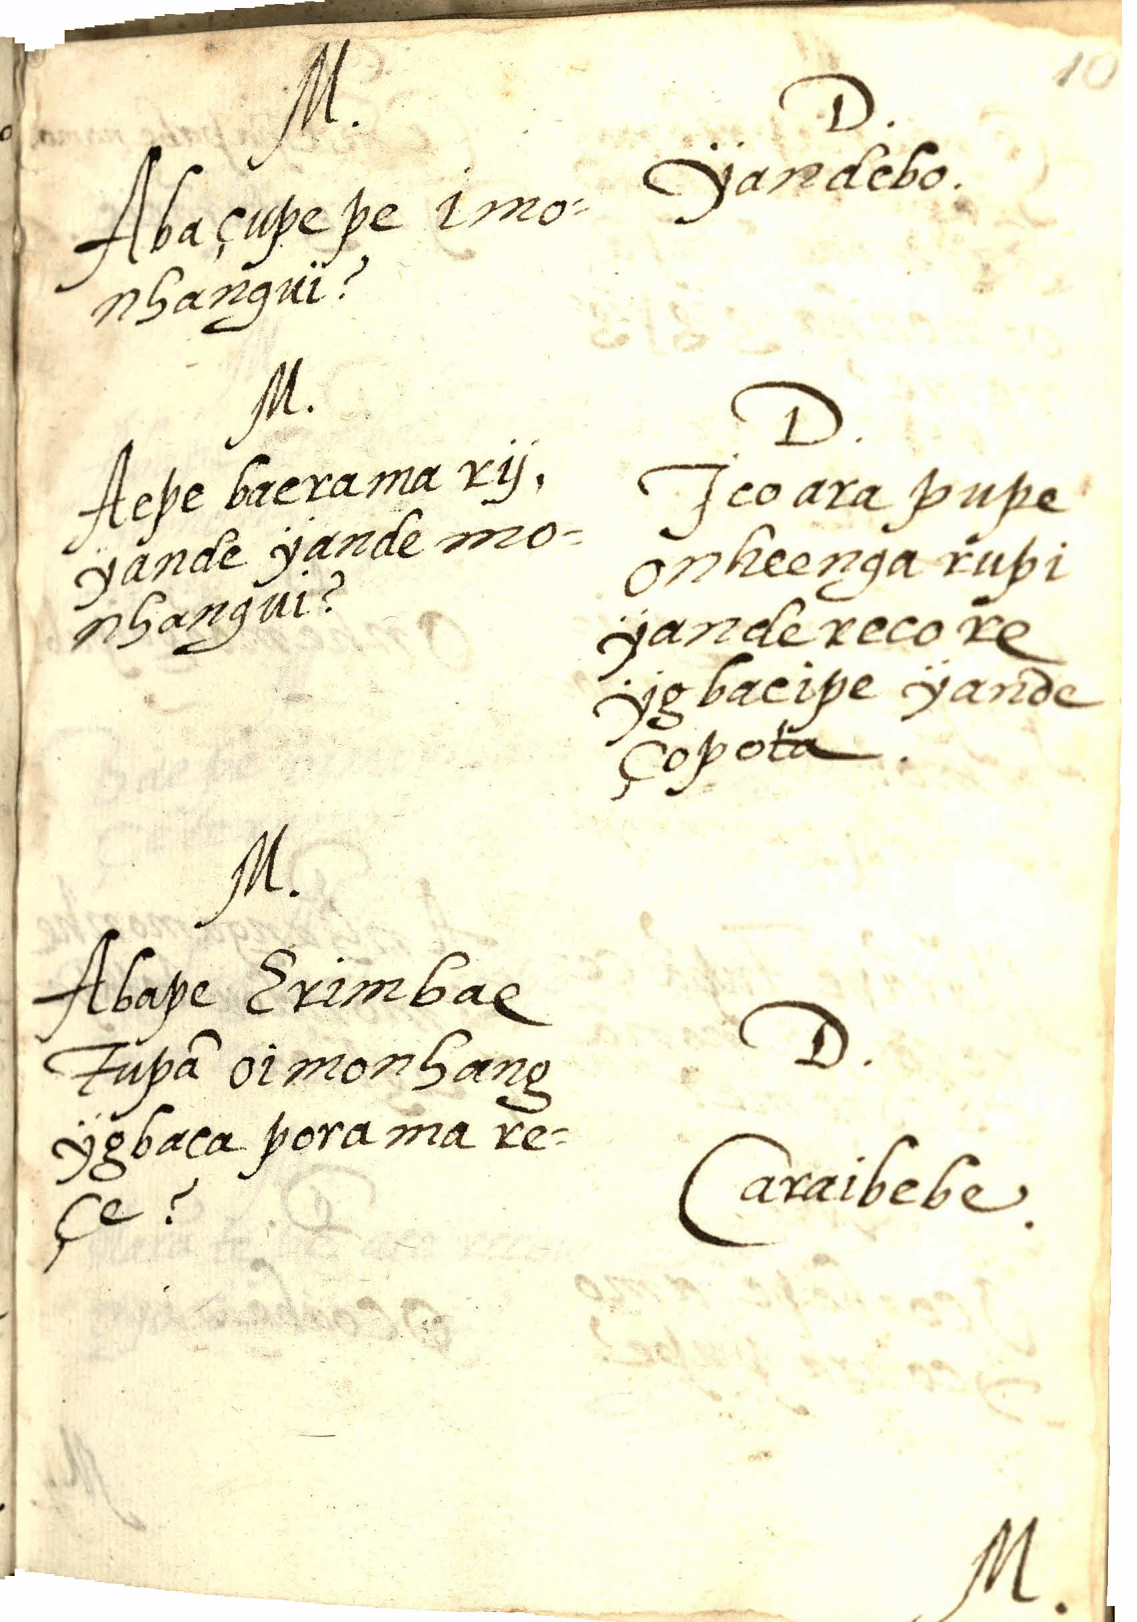 10
M.
Abaçupe pe imo=
nhangui?
D.
ÿandebo.
M.
Aepe baerama rij,
ÿande ÿande mo=
nhangui?
D.
Jco ara pupe
onheenga rupi
ÿande reco re
ÿgbacipe ÿande
çopota.
M.
Abape Erimbae
Tupã oimonhang
ÿgbaca porama re=
çe?
D.
Caraibebe.
M.